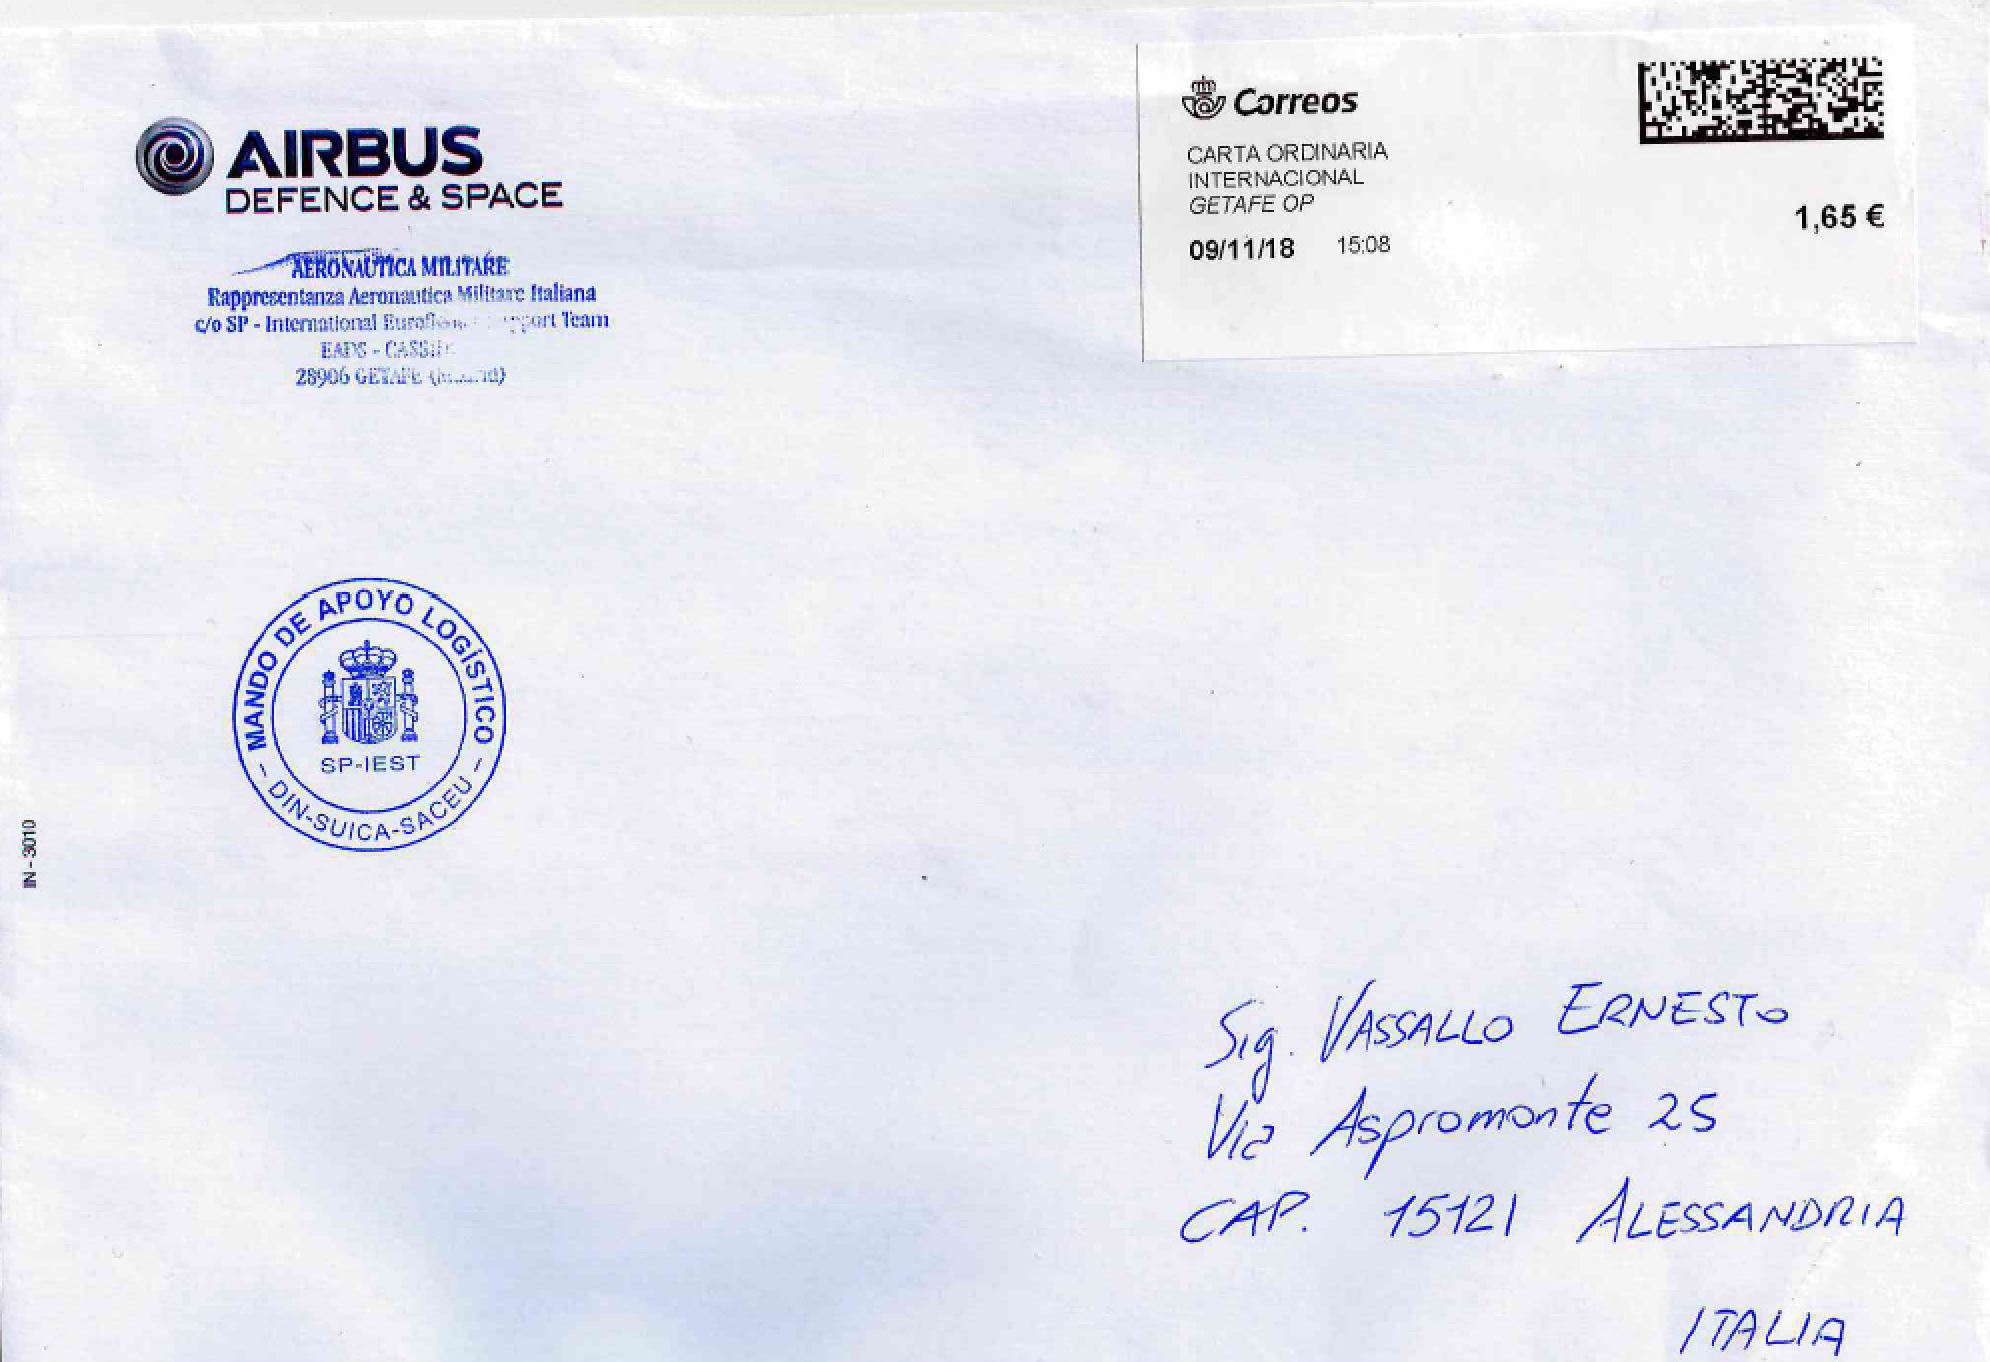 AIRBUS
DEFENCE & SPACE
AERONAUTICA MILITARE
Rappresentanza Aeronautica Militare Italiana
c/o SP - International Team
EADS -
28906 GETAFE
Correos
CARTA ORDINARIA
INTERNACIONAL
GETAFE OP
09/11/18 15:08
1,65 €
MANDO DE APOYO LOGÍSTICO
SP-IEST
- DIN-SUICA-SACEU -
IN - 3010
Sig. VASSALLO ERNESTO
Via Aspromonte 25
CAP. 15121 ALESSANDRIA
ITALIA